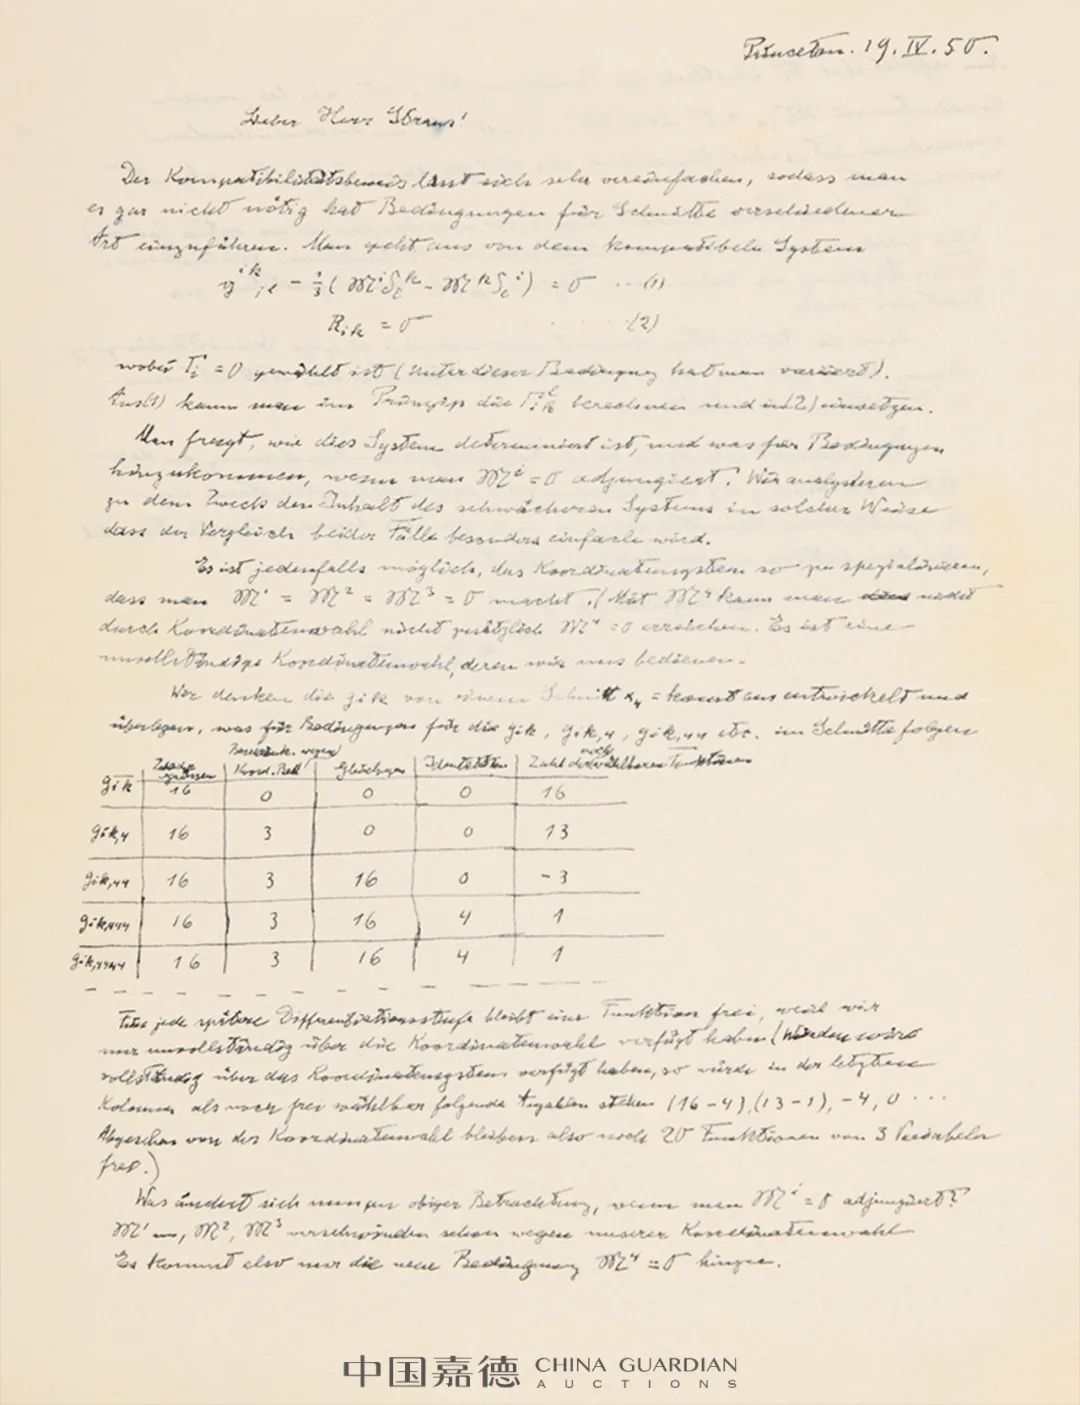 Princeton. 19. IV. 50.
Lieber Herr Straus!
Der Kompatibilitätsbeweis lässt sich sehr vereinfachen, sodass man
es gar nicht nötig hat Bedingungen für Schnitte verschiedener
Art einzuführen. Man geht aus von dem kompatibeln System
𝔤^{ik}_{;l} - 1/3 (𝔐^i δ_l^k - 𝔐^k δ_l^i) = 0 ... (1)
R_{ik} = 0 (2)
wobei Γ_i = 0 gewählt ist (unter dieser Bedingung hat man variiert).
Aus (1) kann man im Prinzip die Γ_{ik}^l berechnen und in (2) einsetzen.
Man fragt, wie dies System determiniert ist, und was für Bedingungen
hinzukommen, wenn man 𝔐^i = 0 adjungiert. Wir analysieren
zu dem Zweck den Inhalt des schwächeren Systems in solcher Weise
dass der Vergleich beider Fälle besonders einfach wird.
Es ist jedenfalls möglich, das Koordinatensystem so zu spezialisieren,
dass man 𝔐^1 = 𝔐^2 = 𝔐^3 = 0 macht. (Mit 𝔐^4 kann man nicht
durch Koordinatenwahl nicht zusätzlich 𝔐^4 = 0 erreichen. Es ist eine
unvollständige Koordinatenwahl, deren wir uns bedienen.
Wir denken die g_{ik} von einem Schnitt x_4 = konst aus entwickelt und
überlegen, was für Bedingungen für die g_{ik}, g_{ik,4}, g_{ik,44} etc. im Schnitte folgen
Koord. Gleichungen Identitäten Zahl der noch wählbaren Funktionen
g_{ik} 16 0 0 0 16
g_{ik,4} 16 3 0 0 13
g_{ik,44} 16 3 16 0 -3
g_{ik,444} 16 3 16 4 1
g_{ik,4444} 16 3 16 4 1
Für jede spätere Differentiationsstufe bleibt eine Funktion frei, weil wir
nur unvollständig über die Koordinatenwahl verfügt haben (Würden wir
vollständig über das Koordinatensystem verfügt haben, so würde in der letzten
Kolonne als noch frei wählbar folgende Angaben stehen (16-4), (13-1), -4, 0 ...
Abgesehen von der Koordinatenwahl bleiben also noch 20 Funktionen von 3 Variabeln
frei.)
Was ändert sich nun an obiger Betrachtung, wenn man 𝔐^i = 0 adjungiert?
𝔐^1, 𝔐^2, 𝔐^3 verschwinden schon wegen unserer Koordinatenwahl
Es kommt also nur die neue Bedingung 𝔐^4 = 0 hinzu.
中国嘉德 CHINA GUARDIAN
AUCTIONS